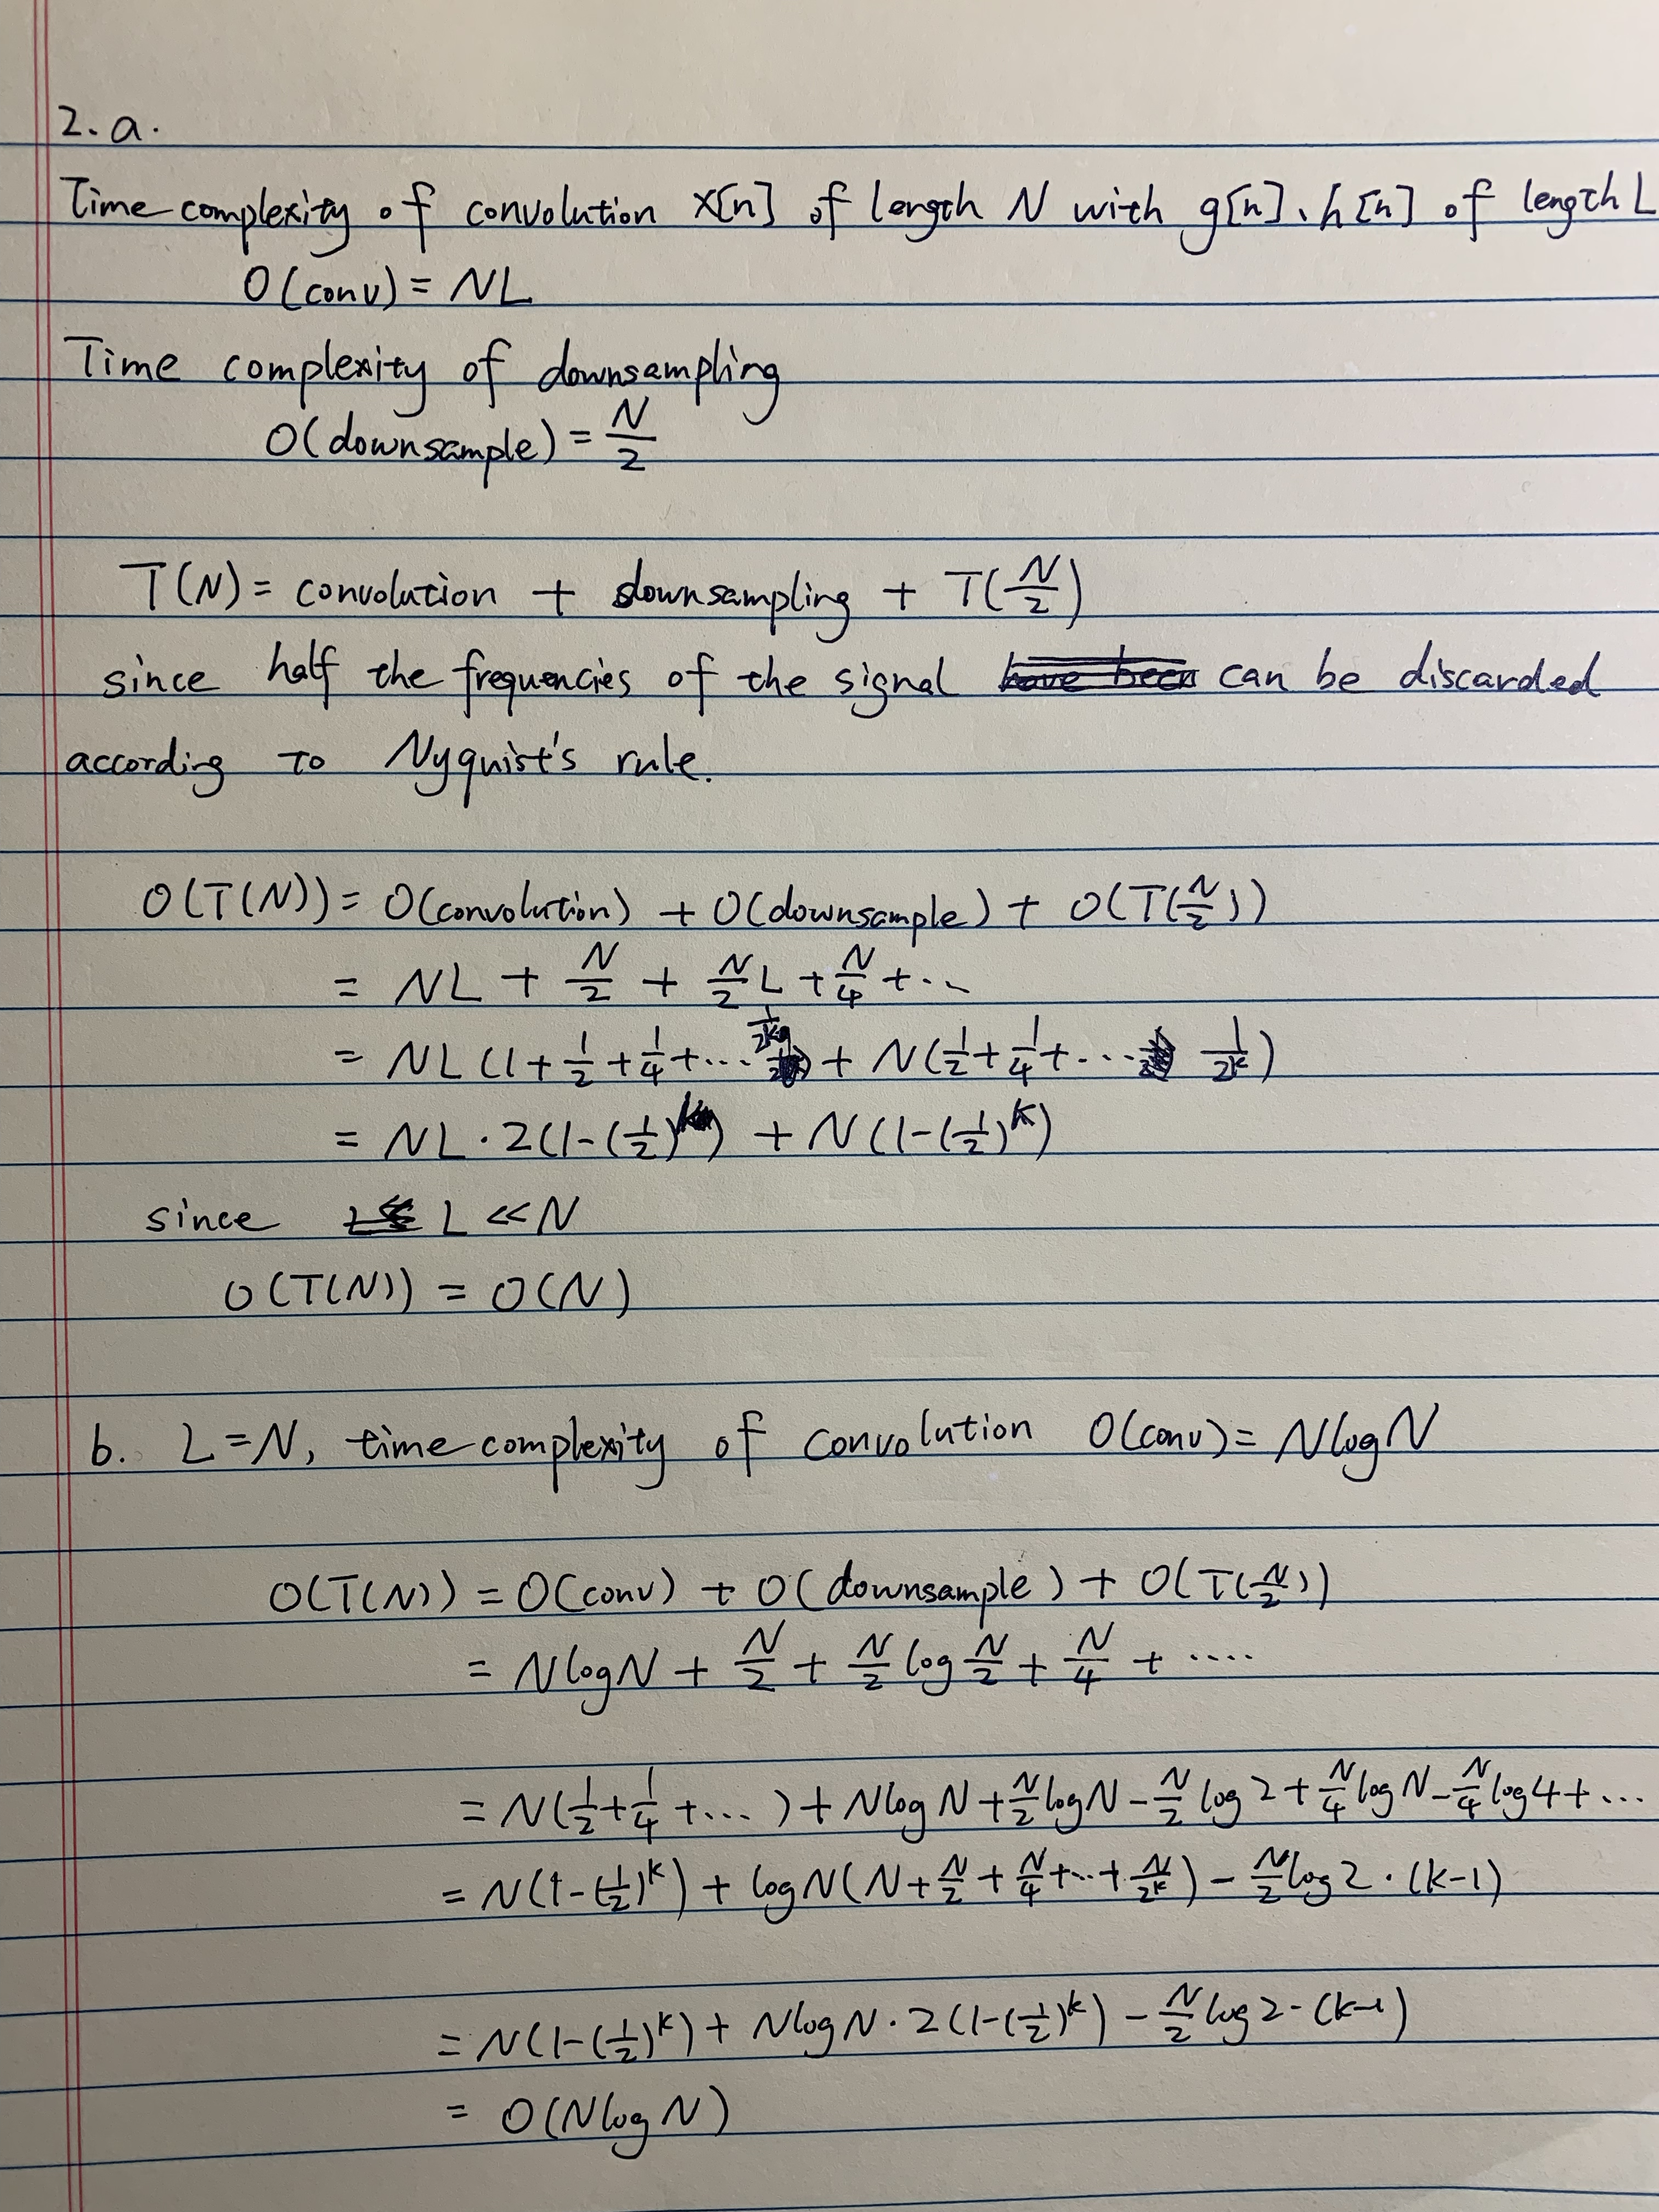 2. a.
Time complexity of convolution x[n] of length N with g[n]、h[n] of length L
O(conv) = NL
Time complexity of downsampling
O(downsample) = N/2
T(N) = convolution + downsampling + T(N/2)
since half the frequencies of the signal can be discarded
according to Nyquist's rule.
O(T(N)) = O(convolution) + O(downsample) + O(T(N/2))
= NL + N/2 + N/2 L + N/4 + ...
= NL (1 + 1/2 + 1/4 + ... ) + N(1/2 + 1/4 + ... 1/2^k)
= NL · 2(1-(1/2)^k) + N(1-(1/2)^k)
since L << N
O(T(N)) = O(N)
b. L = N, time complexity of convolution O(conv) = NlogN
O(T(N)) = O(conv) + O(downsample) + O(T(N/2))
= NlogN + N/2 + N/2 log N/2 + N/4 + ....
= N(1/2 + 1/4 + ... ) + NlogN + N/2 logN - N/2 log2 + N/4 logN - N/4 log4 + ...
= N(1-(1/2)^k) + logN(N + N/2 + N/4 + ... + N/2^k) - N/2 log2 · (k-1)
= N(1-(1/2)^k) + NlogN · 2(1-(1/2)^k) - N/2 log2 · (k-1)
= O(NlogN)